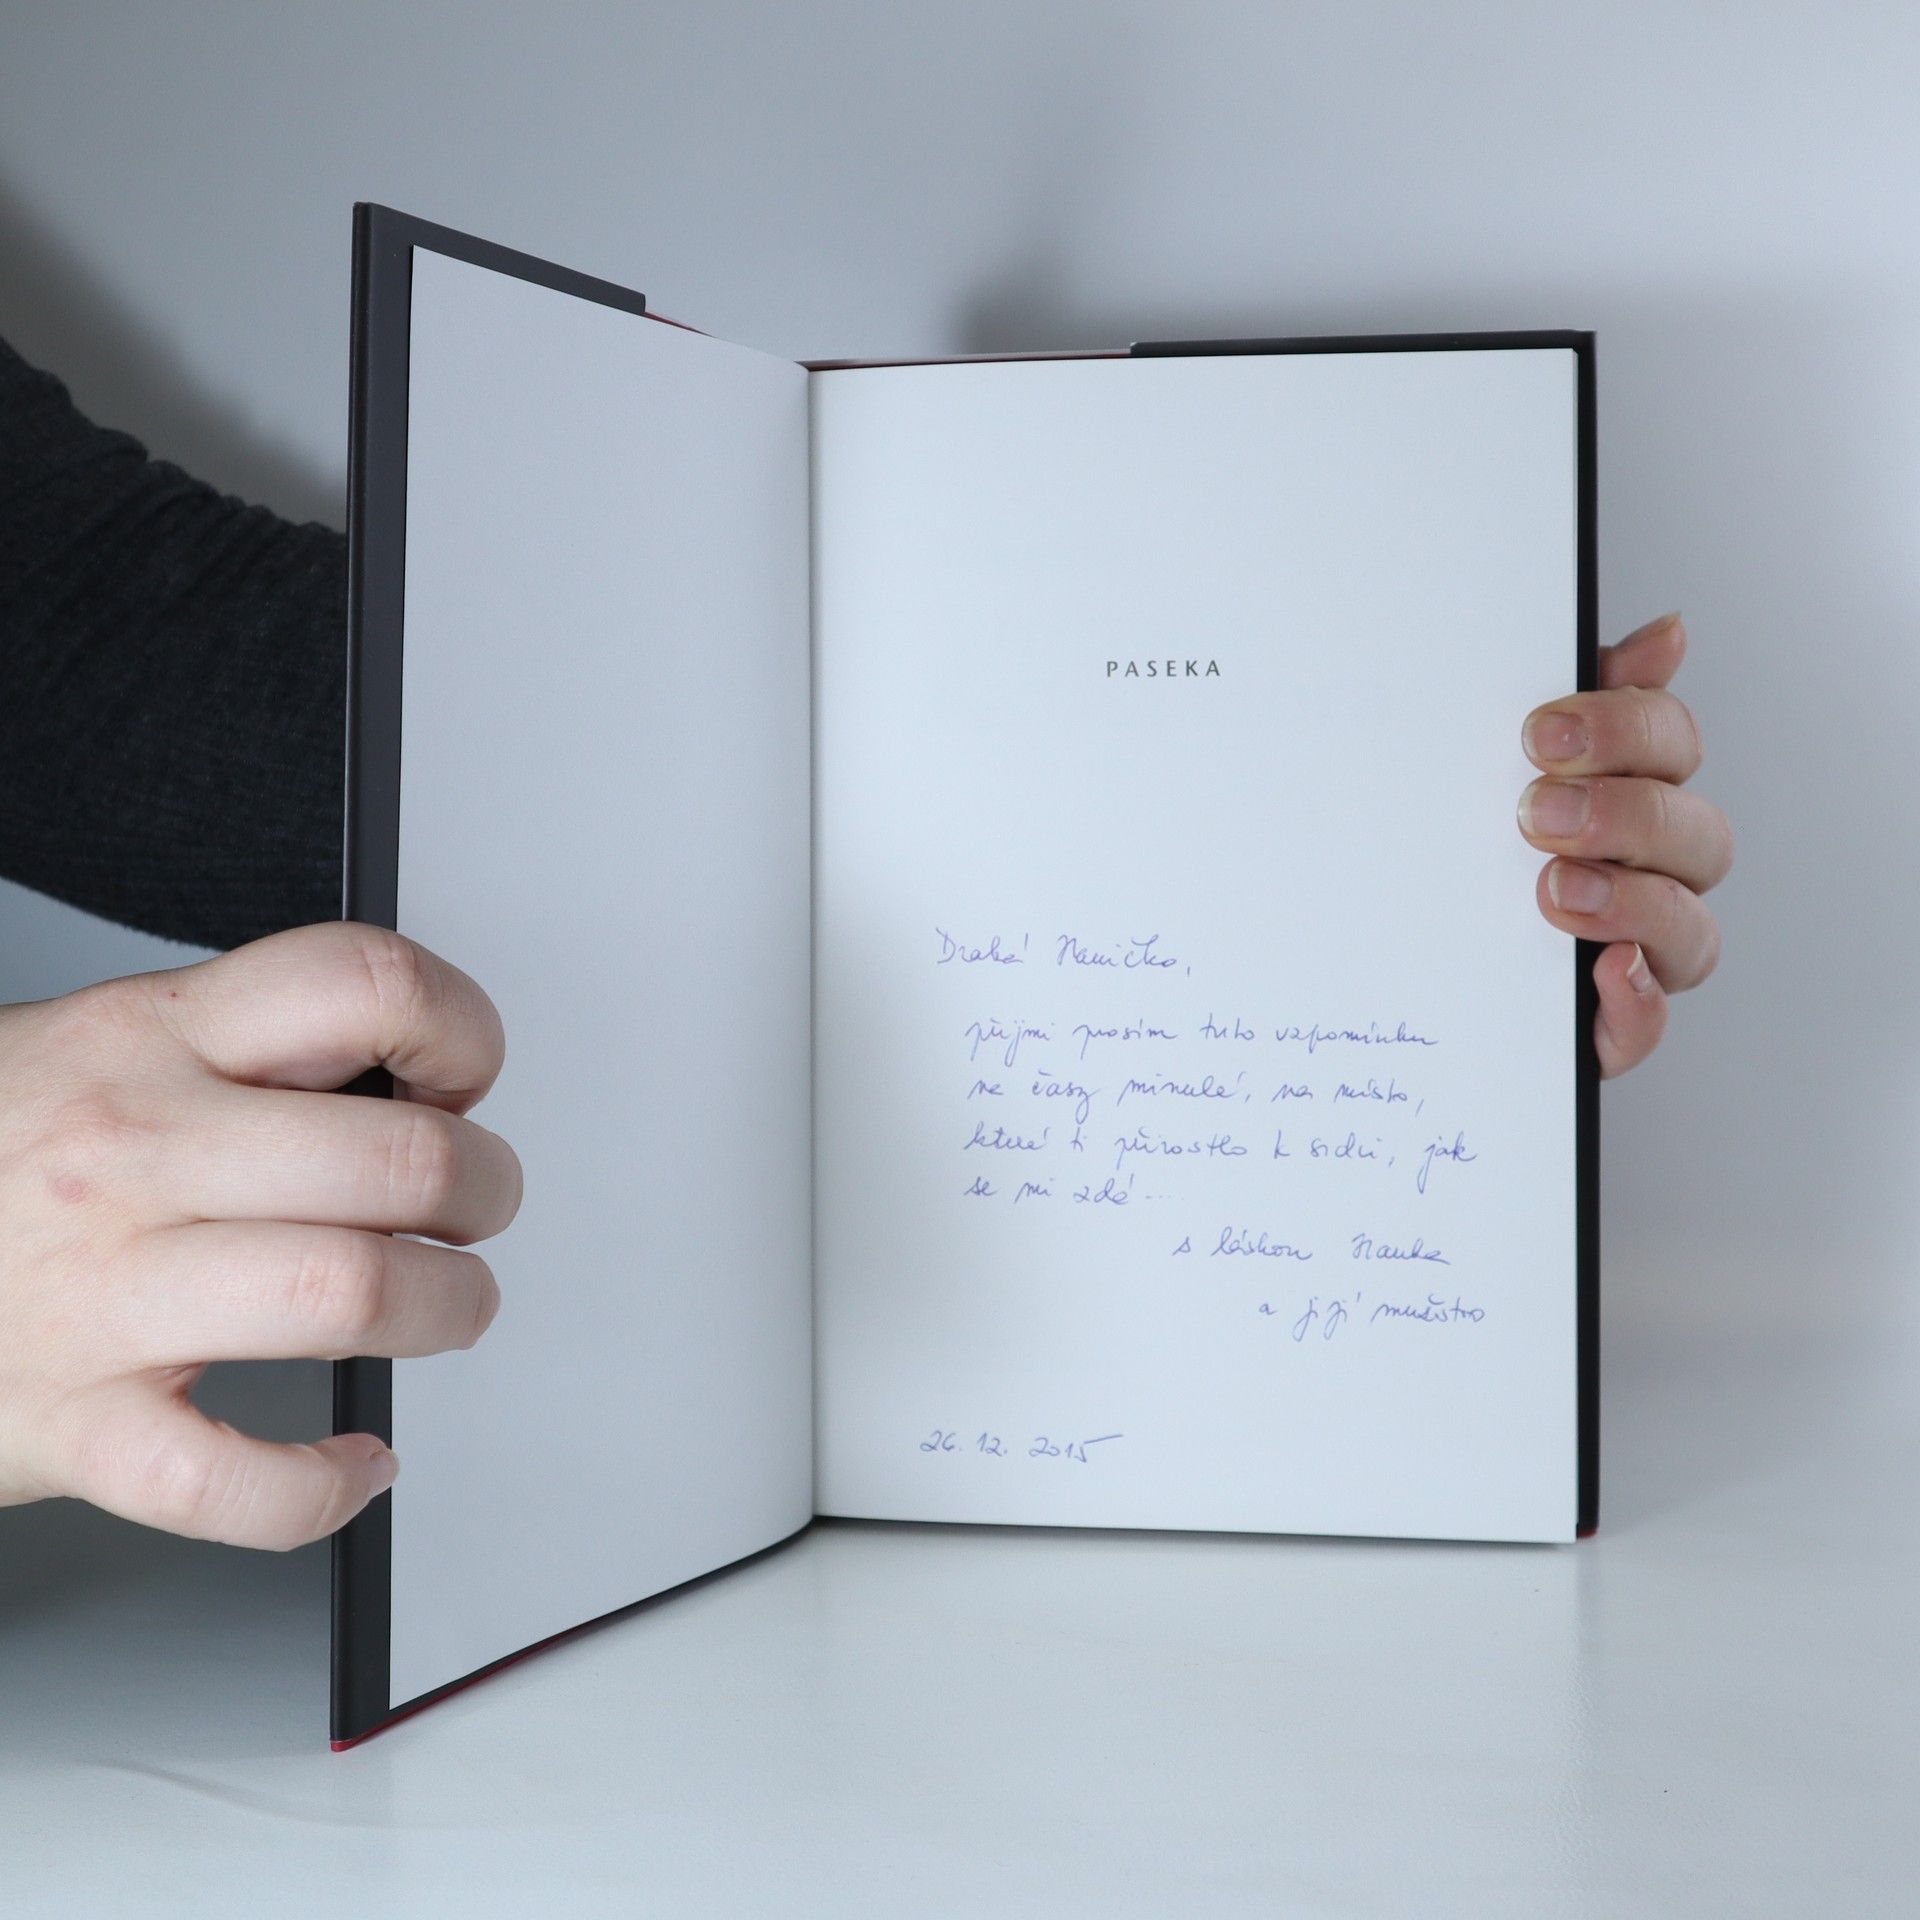 PASEKA
Drahá Haničko,
přijmi prosím tuto vzpomínku
na časy minulé, na místo,
které ti přirostlo k srdci, jak
se mi zdá...
s láskou Hanka
a její mužstvo
26. 12. 2015